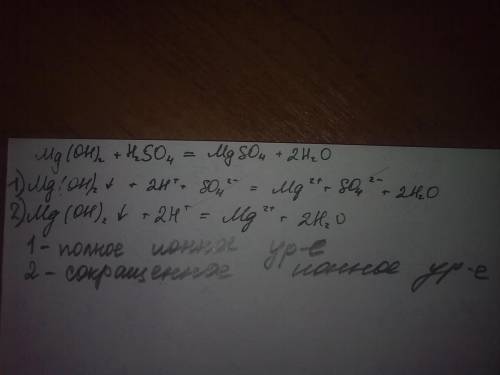 Mg(OH)₂ + H₂SO₄ = MgSO₄ + 2H₂O
1) Mg(OH)₂↓ + 2H⁺ + SO₄²⁻ = Mg²⁺ + SO₄²⁻ + 2H₂O
2) Mg(OH)₂↓ + 2H⁺ = Mg²⁺ + 2H₂O
1 - полное ионное ур-е
2 - сокращенное ионное ур-е